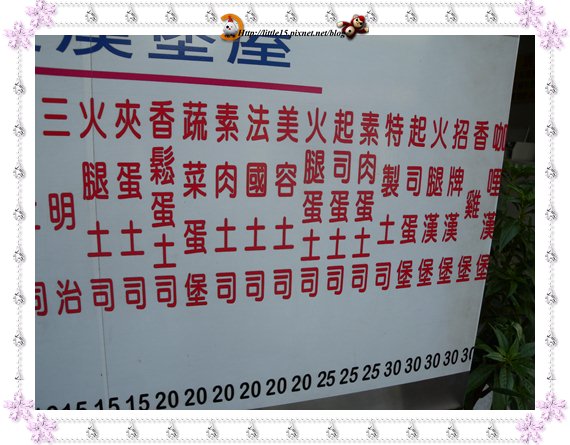 漢堡屋
Http://little15.pixnet.net/blog
咖哩漢堡
香雞堡
招牌漢堡
火腿漢堡
起司蛋堡
特製土司
素肉蛋土司
起司蛋土司
火腿蛋土司
美容土司
法國土司
素肉土司
蔬菜蛋堡
香鬆蛋土司
夾蛋土司
火腿土司
三明治
15 15 15 20 20 20 20 20 20 25 25 25 30 30 30 30 30